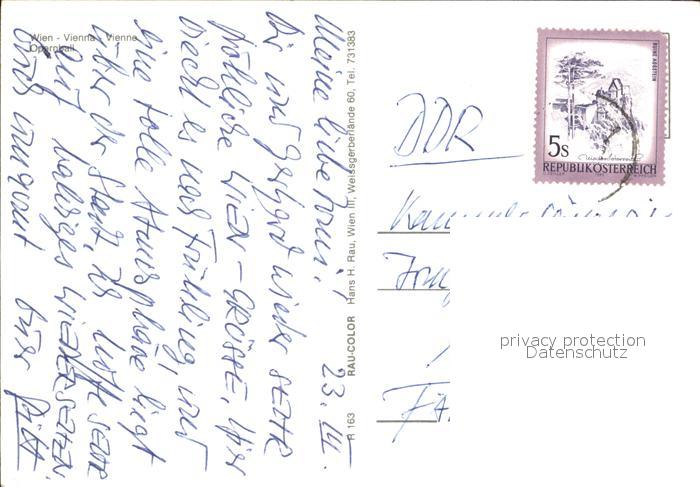 Wien - Vienna - Vienne
Opernball
23. III.
Meine liebe Romi!
Dir und Gerhard wieder seeehr
fröhliche WIEN-GRÜSSE. Hier
riecht es nach Frühling, und
eine tolle Atmosphäre liegt
über der Stadt. Ich hoffe sehr
auf baldiges WIENERSEHEN.
Seid umarmt Eure
R 163 RAU-COLOR Hans H. Rau, Wien III, Weissgerberlände 60, Tel. 731383
DDR
5s
RUINE AGGSTEIN
Niederösterreich
REPUBLIK ÖSTERREICH
privacy protection
Datenschutz